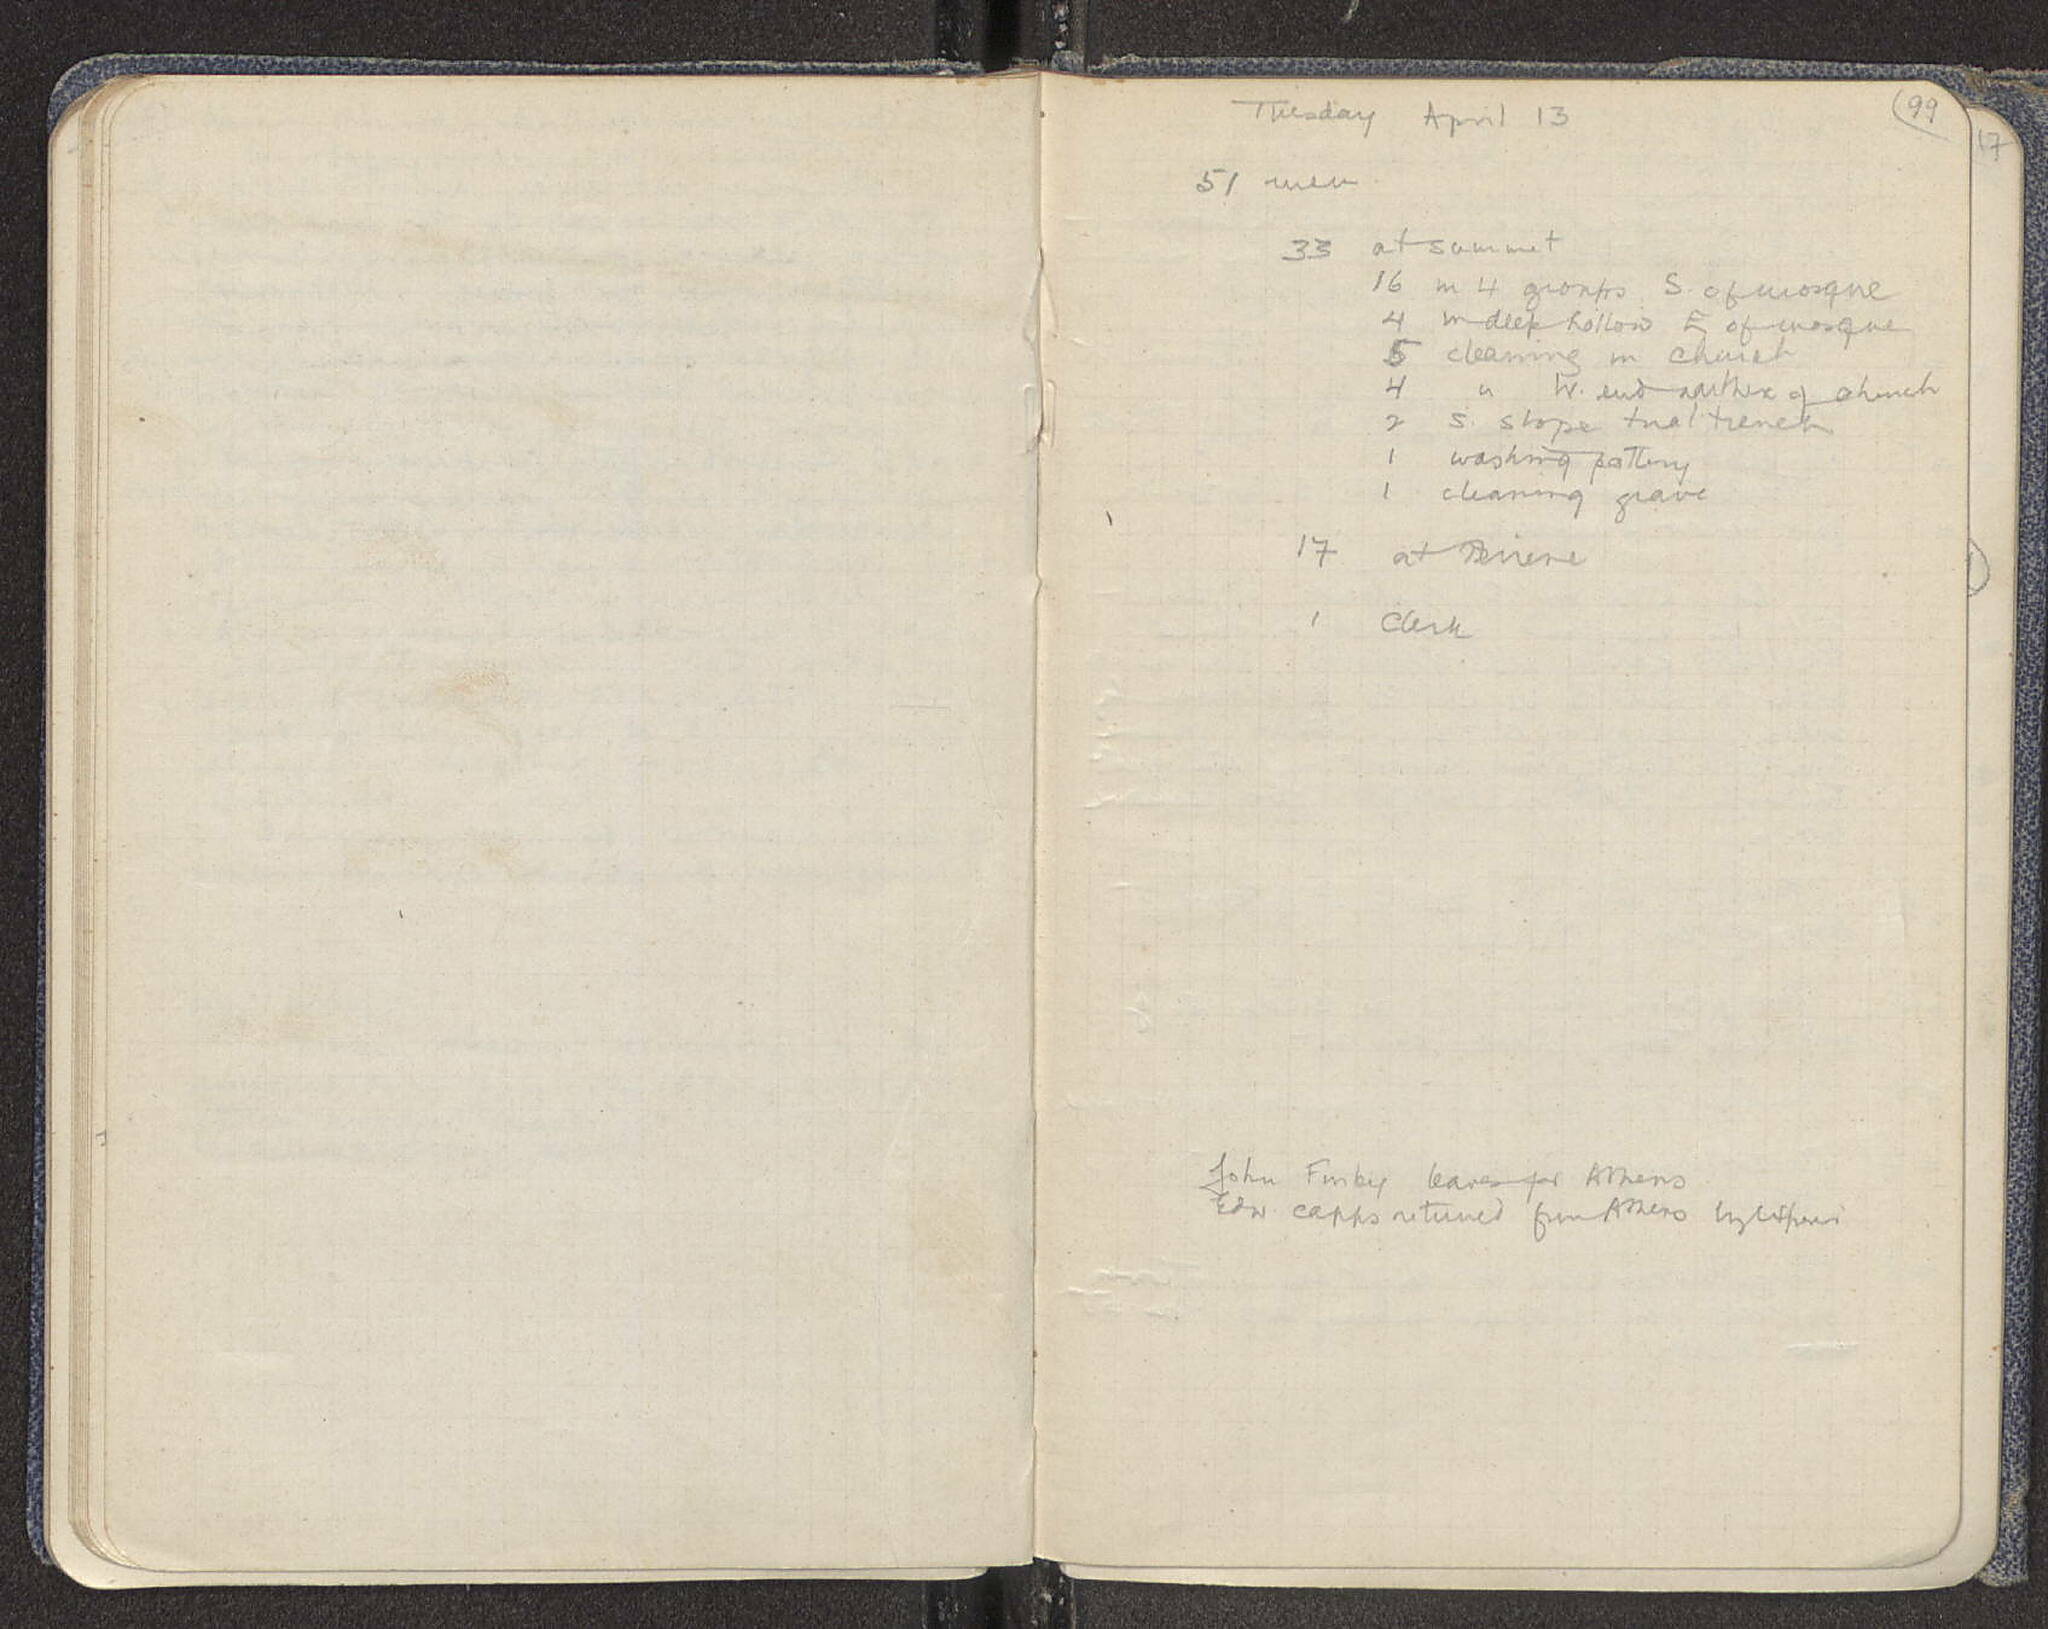 99
17
Tuesday April 13
51 men
33 at summit
16 in 4 groups S. of mosque
4 in deep hollow E of mosque
5 cleaning in church
4 " W. end narthex of church
2 S. slope trial trench
1 washing pottery
1 cleaning grave
17 at Peirene
1 Clerk
John Finley leaves for Athens
Edw. Capps returned from Athens by